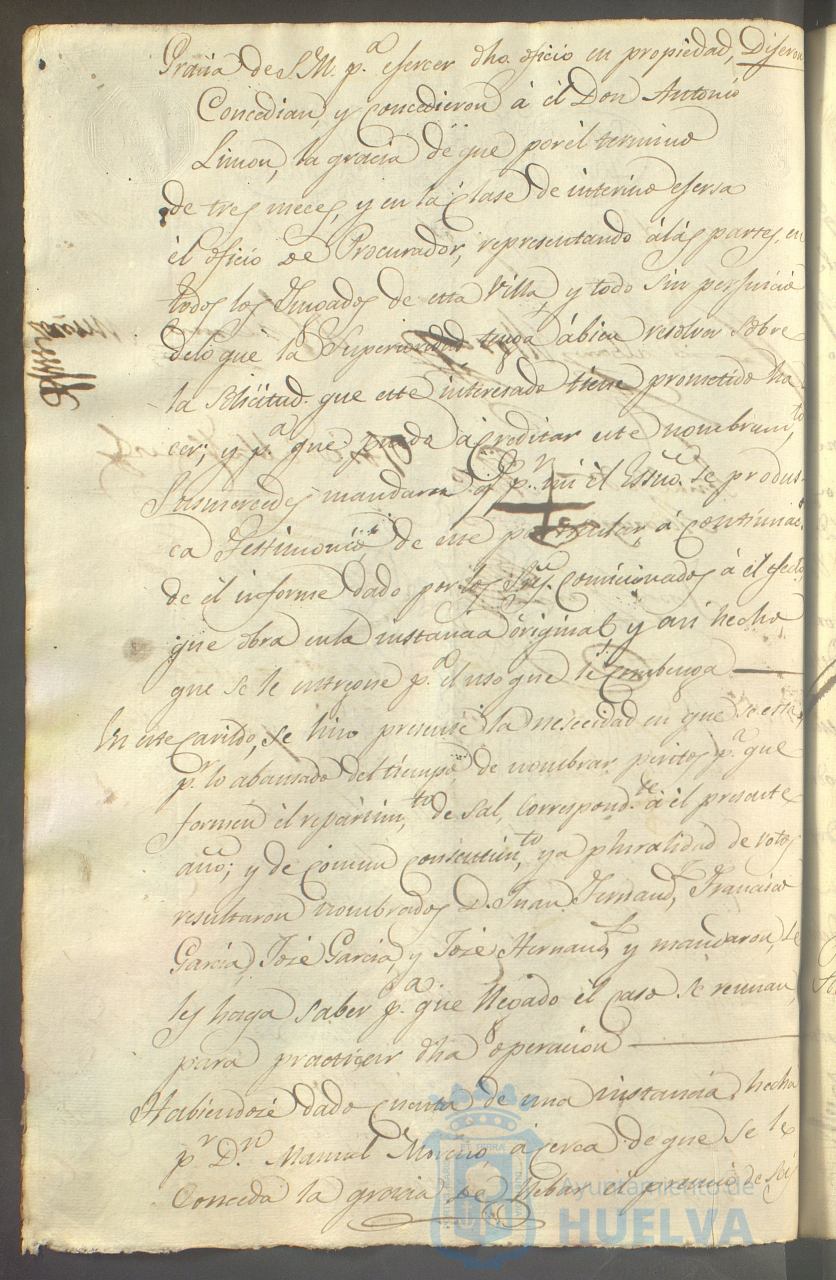 Gracia de S.M. p.a esercer dho. oficio en propiedad, Diseron
Concedian, y concedieron á él Don Antonio
Limon, la gracia de que por él termino
de tres meces, y en la clase de interino esersa
él oficio de Procurador, representando á lás partes, en
todos los Jusgados de esta Villa, y todo sin perjuicio
de lo que la Superioridad tenga ábien resolver sobre
la solicitud que este interesado tiene prometido ha
cer; y p.a que pueda ácreditar este nombram.to
Susmercedes mandaron q.e p.r mi él Essno. se produs-
ca Testimonio de este particular, á continuac.
de él informe dado por los Sres. comicionados á él efecto,
que óbra en la instancia óriginal, y asi hecho
que se le entregue p.a él uso que le combenga
En este Cavildo, se hiso presente la nesecidad en que se está,
p.r lo abansado del tiempo, de nombrar peritos p.a que
formen él repartim.to de Sal, correspond.te á él presente
año; y de comun consentim.to, y a pluralidad de votos
resultaron nombrados D. Juan Fernand.z, Francisco
Garcia, José Garcia, y José Hernand.z y mandaron, se
les haga saber p.a que llegado él caso se reunan,
para practicar dha óperacion
Habiendose dado cuenta de una instancia, hecha
p.r D.n Manuel Moreno á cerca de que se le
Conceda la gracia de llebar el precio de seis
Ayuntamiento de
HUELVA